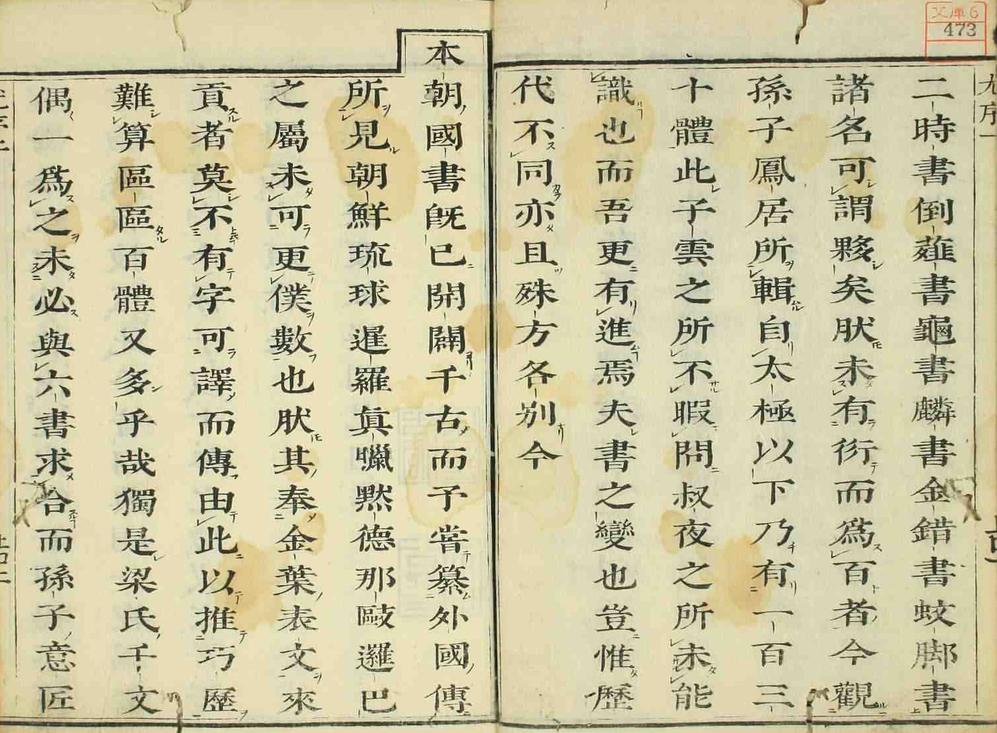 二時書倒薤書龜書麟書金錯書蚊脚書
諸名可謂夥矣肰未有衍而爲百者今觀
孫子鳳居所輯自太極以下乃有一百三
十體此子雲之所不暇問叔夜之所未能
識也而吾更有進焉夫書之變也豈惟歷
代不同亦且殊方各別今
本朝國書旣已開闢千古而予嘗纂外國傳
所見朝鮮琉球暹羅眞臘默德那歐邏巴
之屬未可更僕數也肰其奉金葉表文來
貢者莫不有字可譯而傳由此以推巧歷
難算區區百體又多乎哉獨是梁氏千文
偶一爲之未必與六書求合而孫子意匠
文庫6
473
尤序一